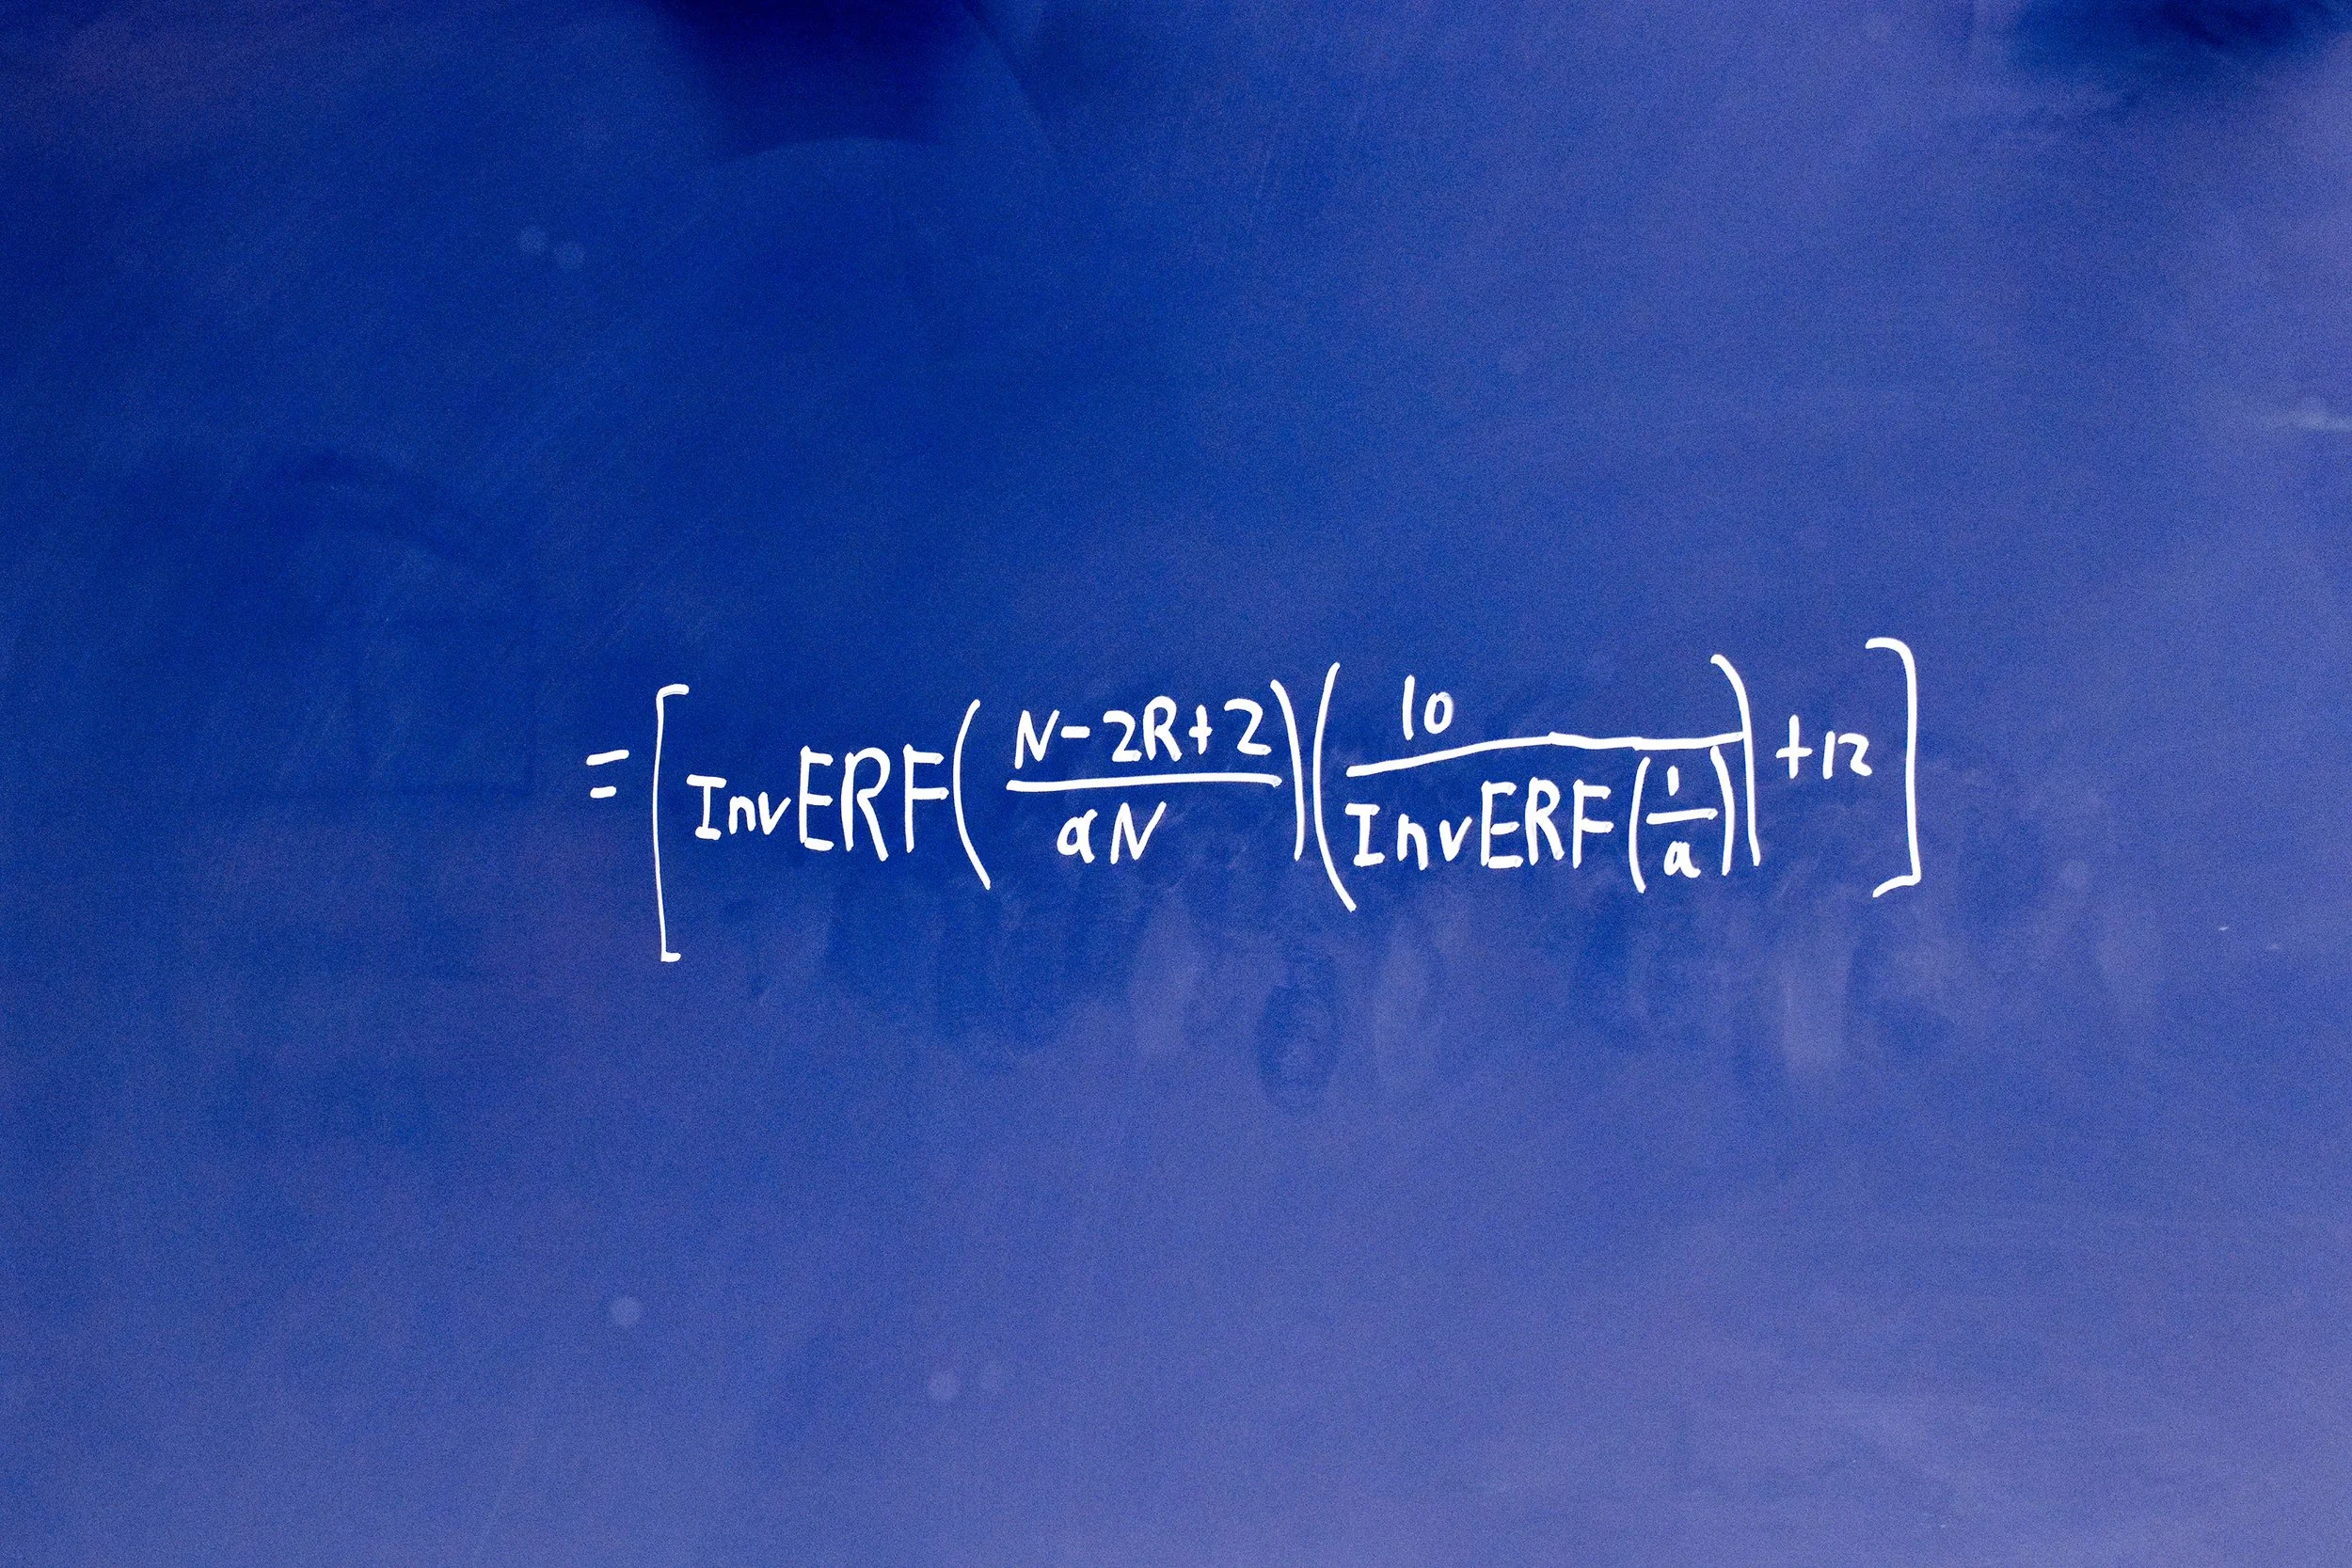 = [InvERF((N-2R+2)/(aN))(10/(InvERF(1/a)))+12]